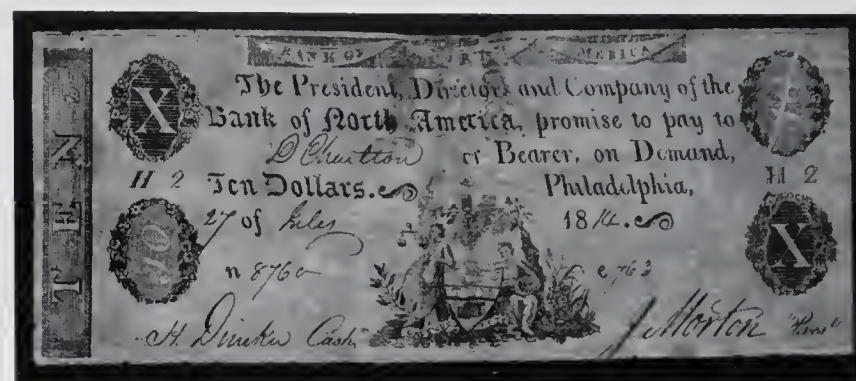 BANK OF NORTH AMERICA
TEN
X
The President, Directors and Company of the
Bank of North America, promise to pay to
D Chariton or Bearer, on Demand,
H 2 Ten Dollars. Philadelphia, H 2
10 27 of July 1814. X
n 8760 763
H. Drinker Cash. J Morton Pres.t